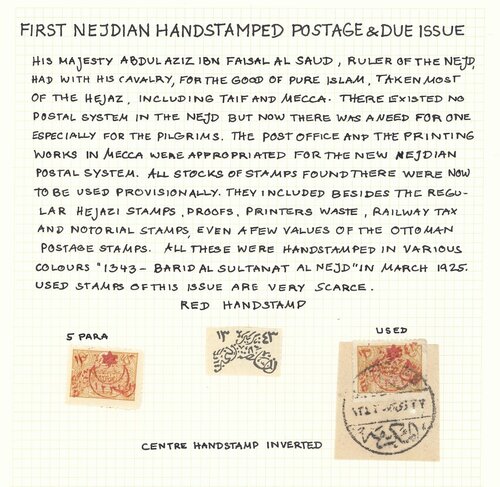 FIRST NEJDIAN HANDSTAMPED POSTAGE & DUE ISSUE
HIS MAJESTY ABDULAZIZ IBN FAISAL AL SAUD, RULER OF THE NEJD,
HAD WITH HIS CAVALRY, FOR THE GOOD OF PURE ISLAM, TAKEN MOST
OF THE HEJAZ, INCLUDING TAIF AND MECCA. THERE EXISTED NO
POSTAL SYSTEM IN THE NEJD BUT NOW THERE WAS A NEED FOR ONE
ESPECIALLY FOR THE PILGRIMS. THE POST OFFICE AND THE PRINTING
WORKS IN MECCA WERE APPROPRIATED FOR THE NEW NEJDIAN
POSTAL SYSTEM. ALL STOCKS OF STAMPS FOUND THERE WERE NOW
TO BE USED PROVISIONALLY. THEY INCLUDED BESIDES THE REGU-
LAR HEJAZI STAMPS, PROOFS, PRINTERS WASTE, RAILWAY TAX
AND NOTORIAL STAMPS, EVEN A FEW VALUES OF THE OTTOMAN
POSTAGE STAMPS. ALL THESE WERE HANDSTAMPED IN VARIOUS
COLOURS "1343 - BARID AL SULTANAT AL NEJD" IN MARCH 1925.
USED STAMPS OF THIS ISSUE ARE VERY SCARCE.
RED HANDSTAMP
5 PARA
USED
١٣ ٤٣
CENTRE HANDSTAMP INVERTED